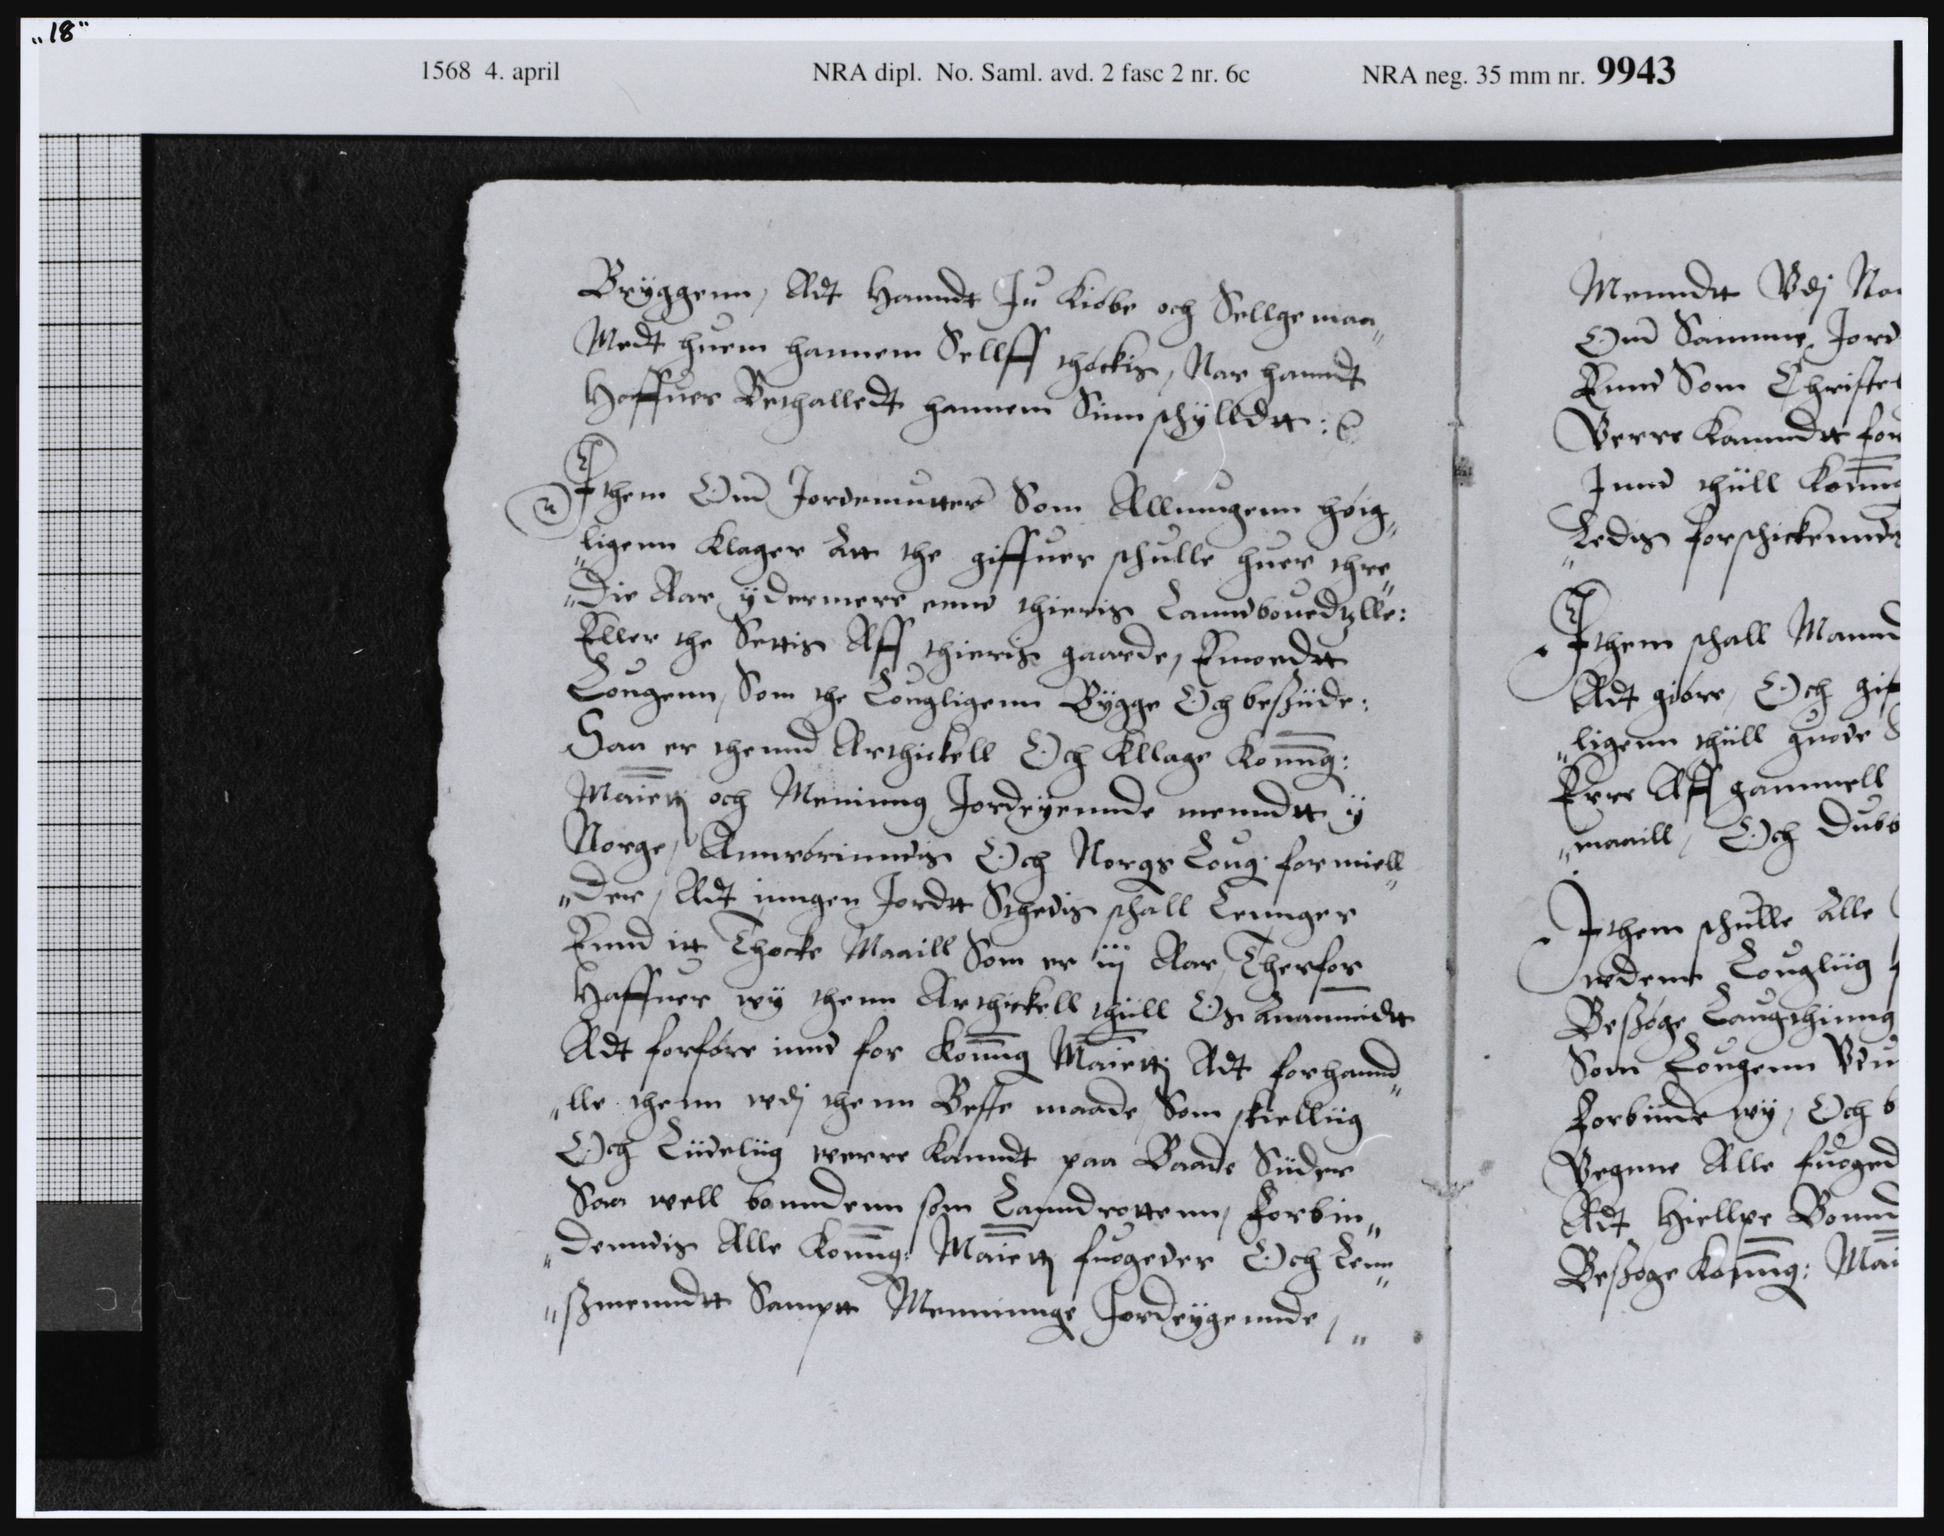 „18"
1568 4. april NRA dipl. No. Saml. avd. 2 fasc 2 nr. 6c NRA neg. 35 mm nr. 9943
Bryggenn, Adt Hanndt Ju Kiøbe och Sellge maa„
Medt huem hannem Sellff thøckis, Nar hanndt
Haffuer Bethalledt hannem Sinn schylldtt:
Jthem Om Jordemutter Som Allmugenn høig„
„ligenn Klager att the giffuer schulle huer thre„
„Die Aar ydermere ennd thieris Lanndbouedzlle:
Eller the Settis Aff thieris gaarde, Emoedtt
Lougenn, Som the Lougligenn Bygge Och beßiide:
Saa er thennd Arthickell Och Kllage Konng:
Maiettj och Meninng Jordeyennde menndtt y
Norge, Anrørinndis Och Norgs Loug formiell„
„Der, Adt inngen Jordtt Schedis schall Lennger
Ennd itt Thocke Maaill Som er iij Aar, Therfor
Haffuer wy thenn Arthickell thiill Os anammidtt
Adt forføre innd for Konng Maiettj Adt forhannd„
„lle thenn wdj thenn Beste maade, Som skielliig
Och Liideliig werre Kanndt paa Baade Siider
Saa well bonndenn som Lanndrottenn, Forbin„
„denndis Alle Konng: Maiettj fuogeder Och Lenn„
„ßmenndtt Samptt Menninnge Jordeygennde, „
Menndtt Vdj Nor
Om Samme Jord
Ennd Som Christe
Verre Kanndtt for
Jnnd thiill Konng
Ledis forschickennde
Jthem schall Mannd
Adt giøre, Och gif
„ligenn thiill guode
Erre Aff gammell
„maaill, Och Dub
Jthem schulle alle
wdenn Lougliig
Beßøge Laugthinng
Som Lougenn Vdu
Forbinde wy, Och b
Vegnne Alle fuoged
Adt Hiellpe Bonnd
Beßøge Konng: Mai